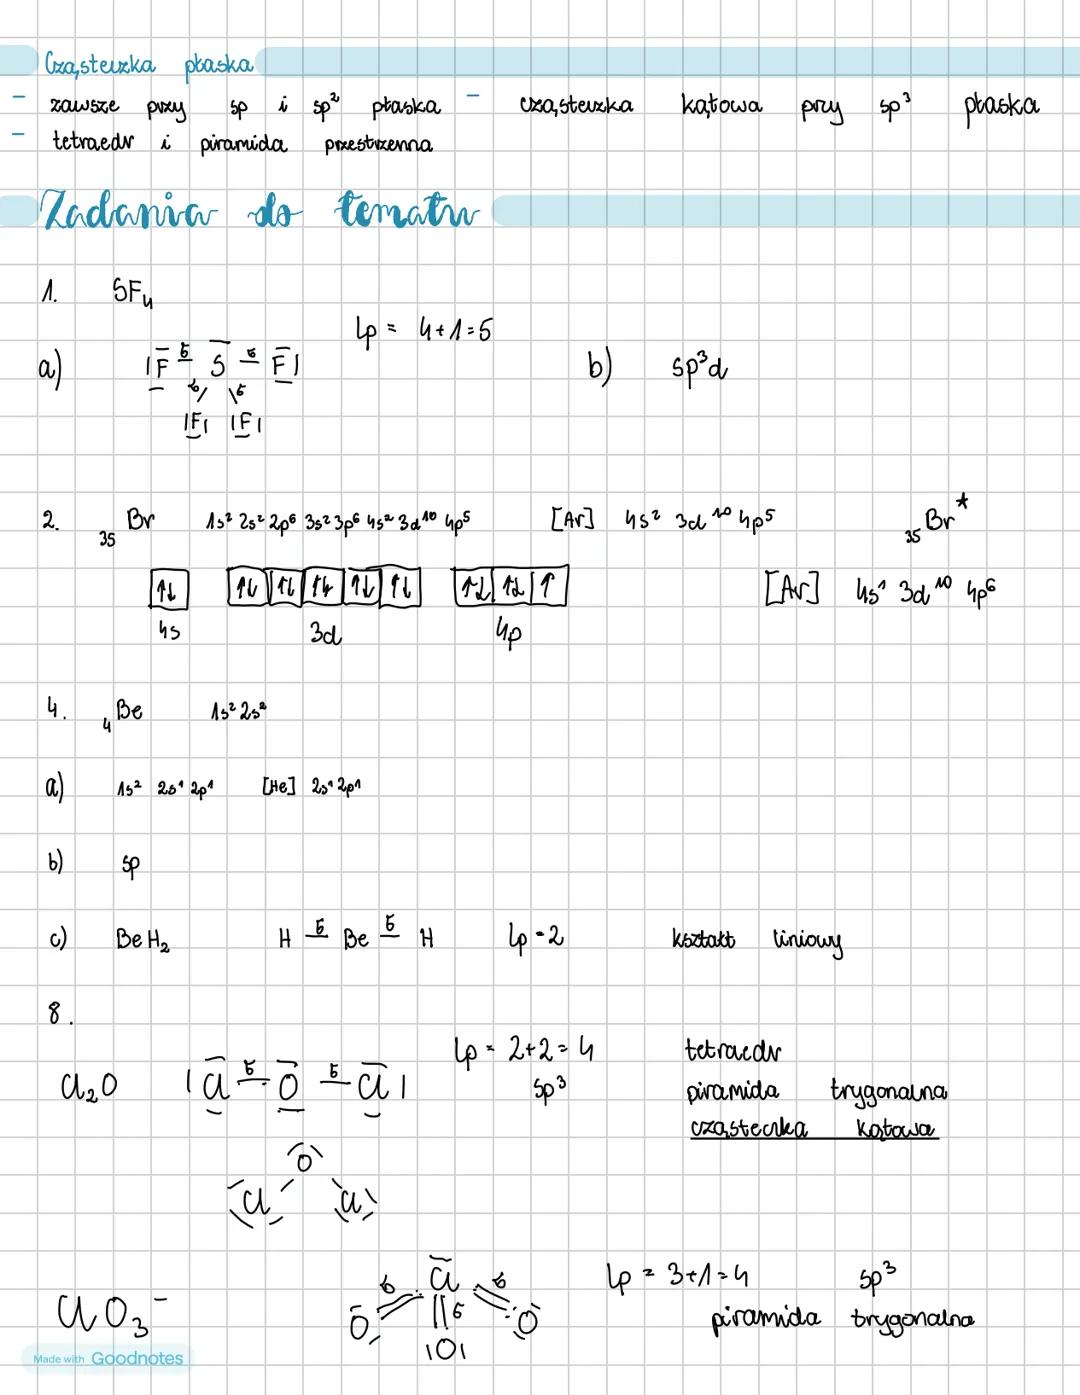 Cząsteczka płaska
- zawsze przy sp i sp² płaska - cząsteczka kątowa przy sp³ płaska
- tetraedr i piramida przestrzenna
Zadania do tematu
1. SF₄
Lp = 4+1=5
a) |F σ S σ F| b) sp³d
σ σ
|F| |F|
2. ₃₅Br 1s² 2s² 2p⁶ 3s² 3p⁶ 4s² 3d¹⁰ 4p⁵ [Ar] 4s² 3d¹⁰ 4p⁵ ₃₅Br*
↑↓ ↑↓ ↑↓ ↑↓ ↑↓ ↑↓ ↑↓ ↑↓ ↑ [Ar] 4s¹ 3d¹⁰ 4p⁶
4s 3d 4p
4. ₄Be 1s² 2s²
a) 1s² 2s¹ 2p¹ [He] 2s¹ 2p¹
b) sp
c) BeH₂ H σ Be σ H Lp = 2 kształt liniowy
8.
Lp = 2+2=4 tetraedr
Cl₂O |Cl σ O σ Cl| sp³ piramida trygonalna
cząsteczka kątowa
O
Cl Cl
Lp = 3+1=4 sp³
ClO₃⁻ O σ Cl σ O piramida trygonalna
σ
|O|
Made with Goodnotes